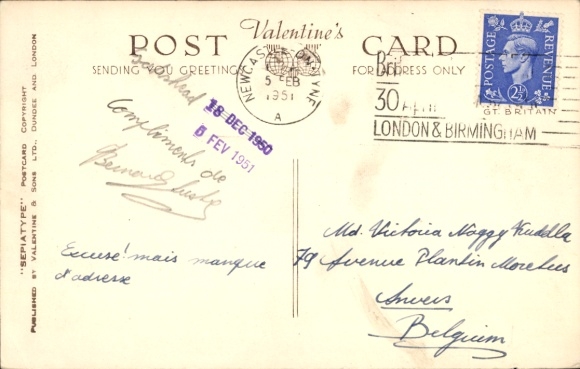 Valentine's
POST CARD
SENDING YOU GREETINGS FOR ADDRESS ONLY
NEWCASTLE-ON-TYNE
5 FEB
1951
A
30 APRIL
GT. BRITAIN
LONDON & BIRMINGHAM
POSTAGE REVENUE
2½
18 DEC 1950
5 FEV 1951
Compliments de
Excusé! mais manque
d'adresse
Md. Victoria Noggy
79 Avenue Plantin Moretus
Anvers
Belgium
"SEPIATYPE" POSTCARD COPYRIGHT
PUBLISHED BY VALENTINE & SONS LTD., DUNDEE AND LONDON